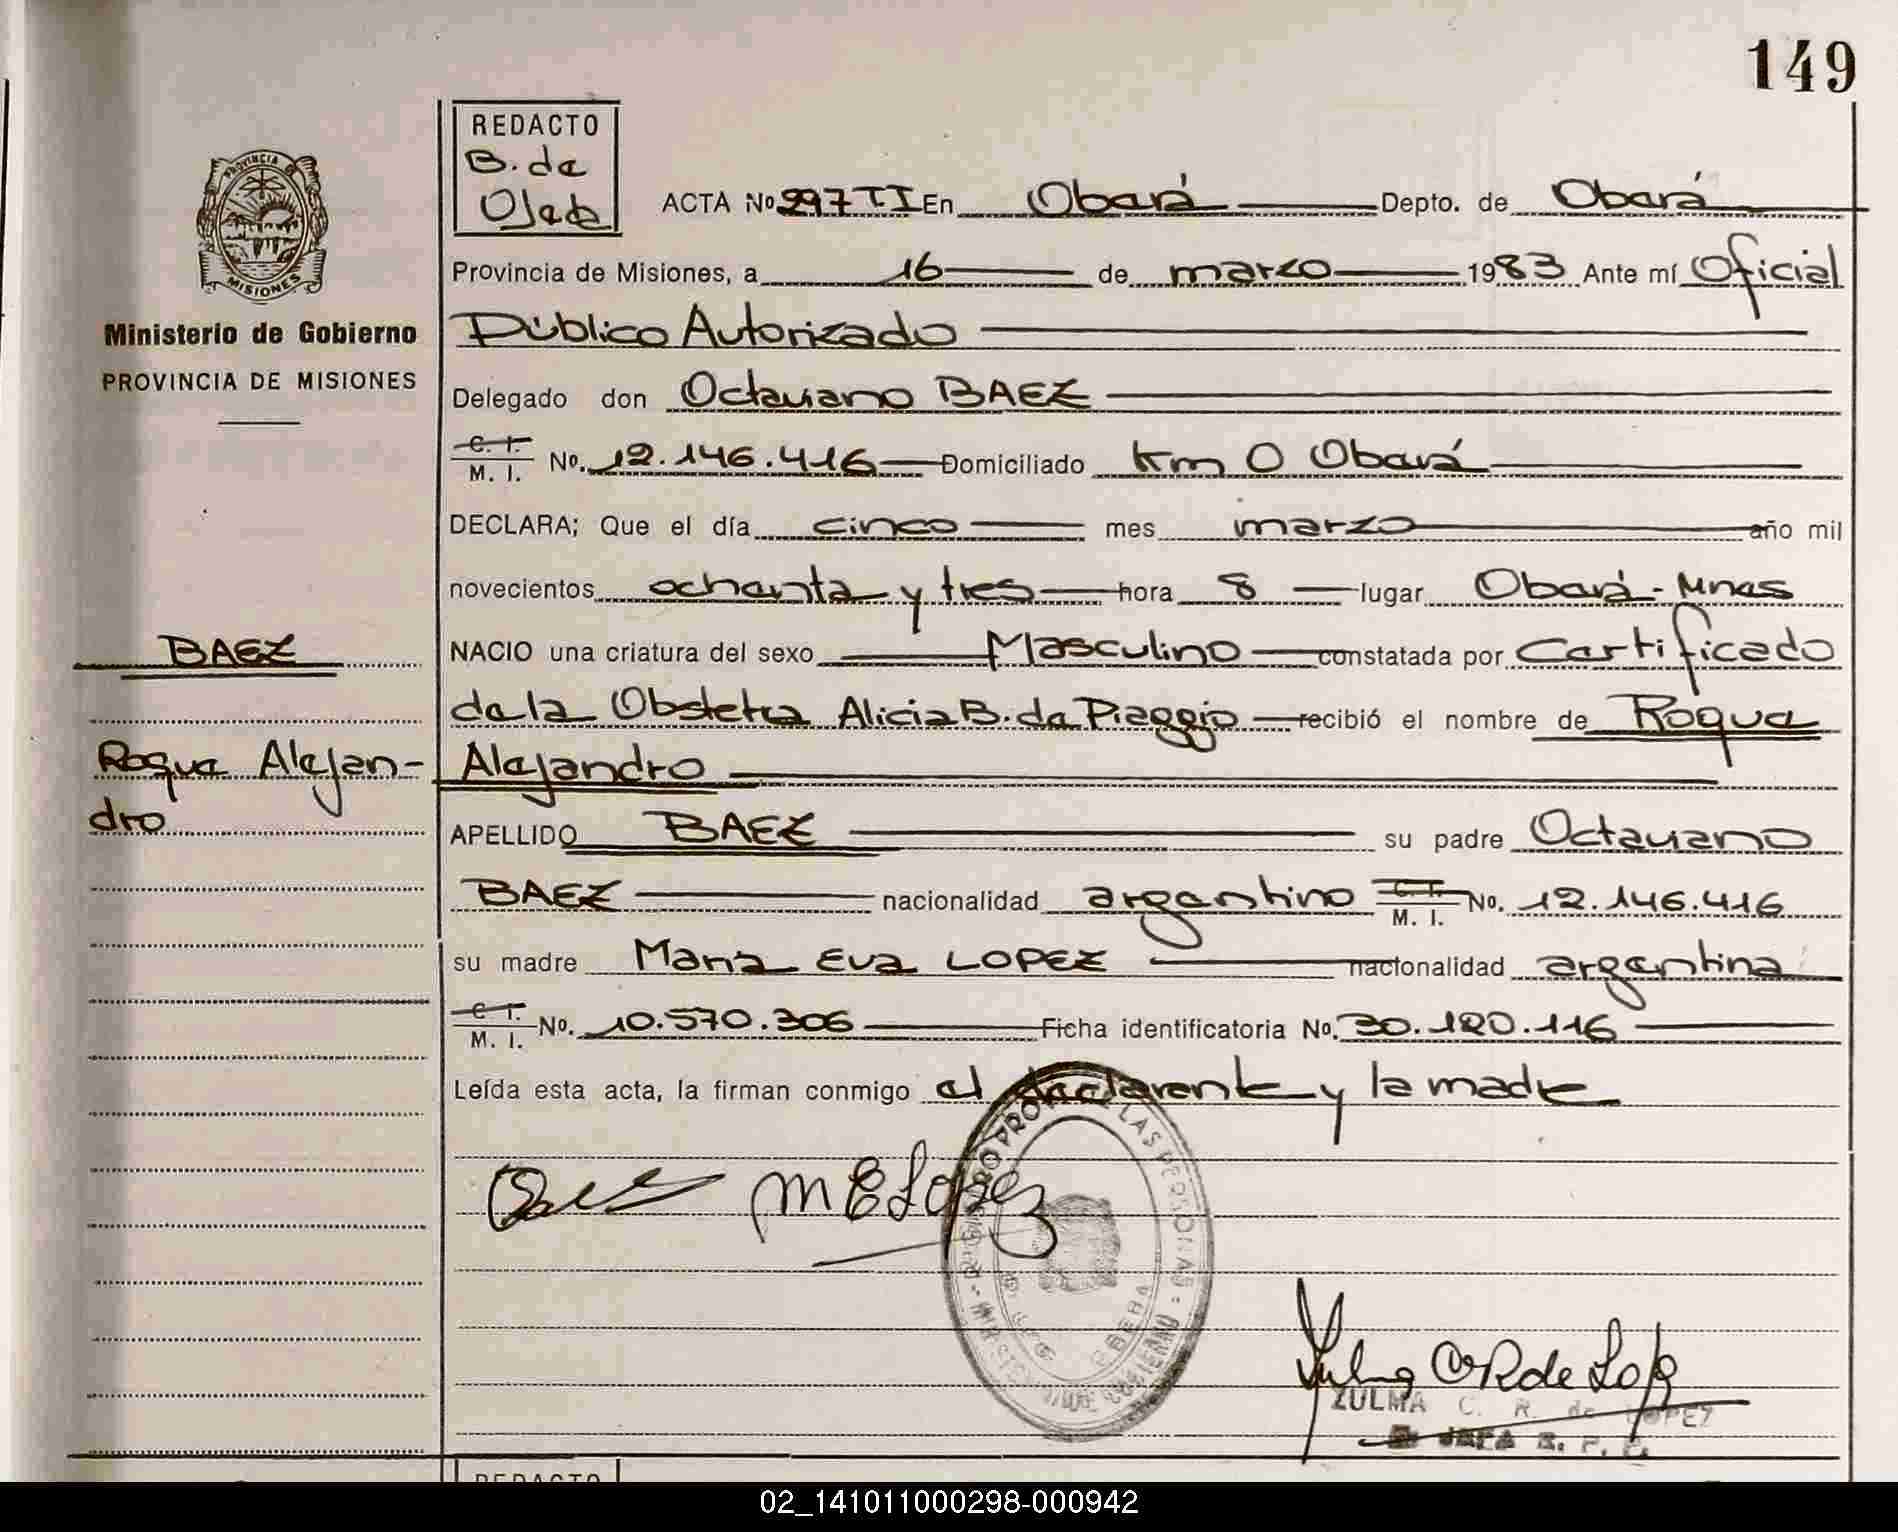 149
REDACTO
B. de
Ojeda
ACTA Nº 297 TI En Oberá Depto. de Oberá
PROVINCIA
MISIONES
Provincia de Misiones, a 16 de marzo 1983 Ante mí Oficial
Ministerio de Gobierno
Público Autorizado
PROVINCIA DE MISIONES
Delegado don Octaviano BAEZ
C. I.
M. I. No. 12.146.416 Domiciliado Km 0 Oberá
DECLARA; Que el día cinco mes marzo año mil
novecientos ochenta y tres hora 8 lugar Oberá - Mnes
BAEZ
NACIO una criatura del sexo Masculino constatada por Certificado
de la Obstetra Alicia B. de Piaggio recibió el nombre de Roque
Roque Alejan-
dro
Alejandro
APELLIDO BAEZ su padre Octaviano
BAEZ nacionalidad argentino C. I. M. I. No. 12.146.416
su madre Maria Eva LOPEZ nacionalidad argentina
C. I.
M. I. No. 10.570.306 Ficha identificatoria No. 30.120.116
Leída esta acta, la firman conmigo el declarante y la madre
Baez M E Lopez
LAS PERSONAS
OBERA
Zulma C R de Lopez
ZULMA C. R. de LOPEZ
JEFA R. P. P.
REDACTO
02_141011000298-000942